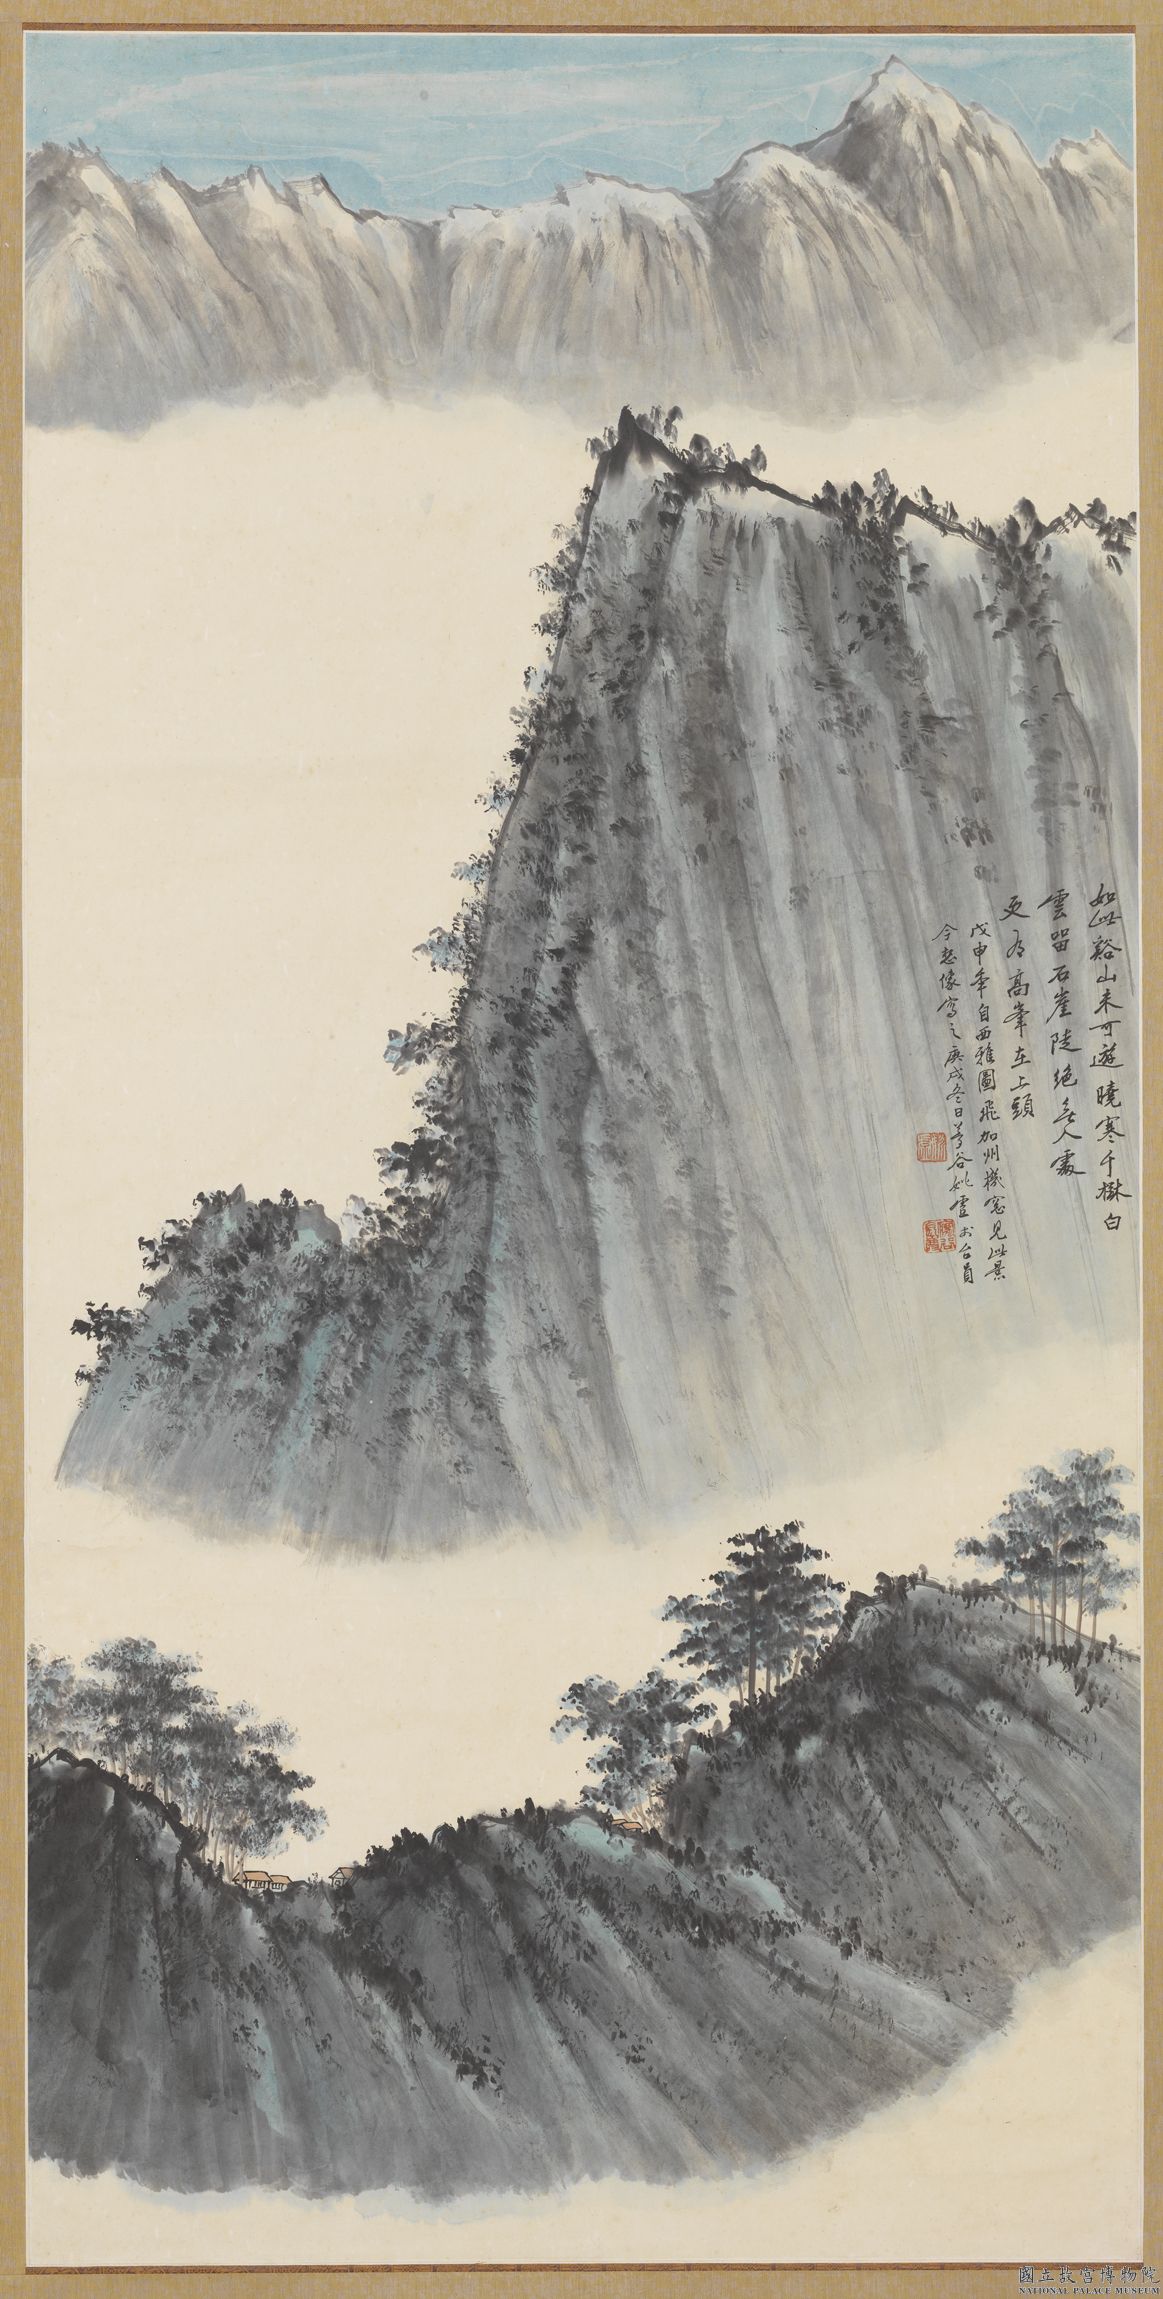 如此谿山未可遊曉寒千樹白
雲留石崖陡絕無人處
更有高峯在上頭
戊申年自西雅圖飛加州機窗見此景
今想像寫之庚戌冬日夢谷姚於台員
國立故宮博物院
NATIONAL PALACE MUSEUM